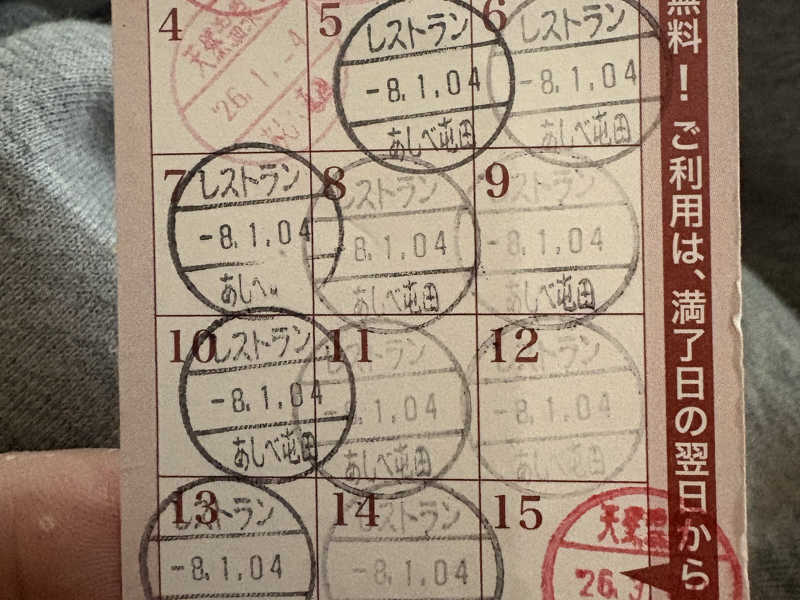 4
'26.1.-4
5
レストラン
-8.1.04
あしべ屯田
6
レストラン
-8.1.04
あしべ屯田
7
レストラン
-8.1.04
あしべ
8
レストラン
-8.1.04
あしべ屯田
9
レストラン
-8.1.04
あしべ屯田
10
レストラン
-8.1.04
あしべ屯田
11
レストラン
-8.1.04
あしべ屯田
12
レストラン
-8.1.04
あしべ屯田
13
レストラン
-8.1.04
14
レストラン
-8.1.04
15
'26.
無料!ご利用は、満了日の翌日から